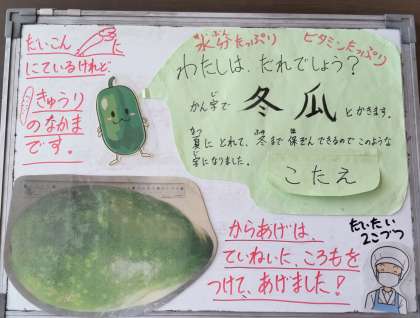 だいこんに
にているけれど、
きゅうり
のなかま
です。
水分たっぷり
すいぶん
ビタミンたっぷり
わたしは、だれでしょう？
かん字で 冬瓜 とかきます。
じ
夏にとれて、冬まで保ぞんできるのでこのような
なつ ふゆ ほ
字になりました。
じ
こたえ
からあげは、
ていねいに、ころもを
つけて、あげました！
だいたい
2こづつ